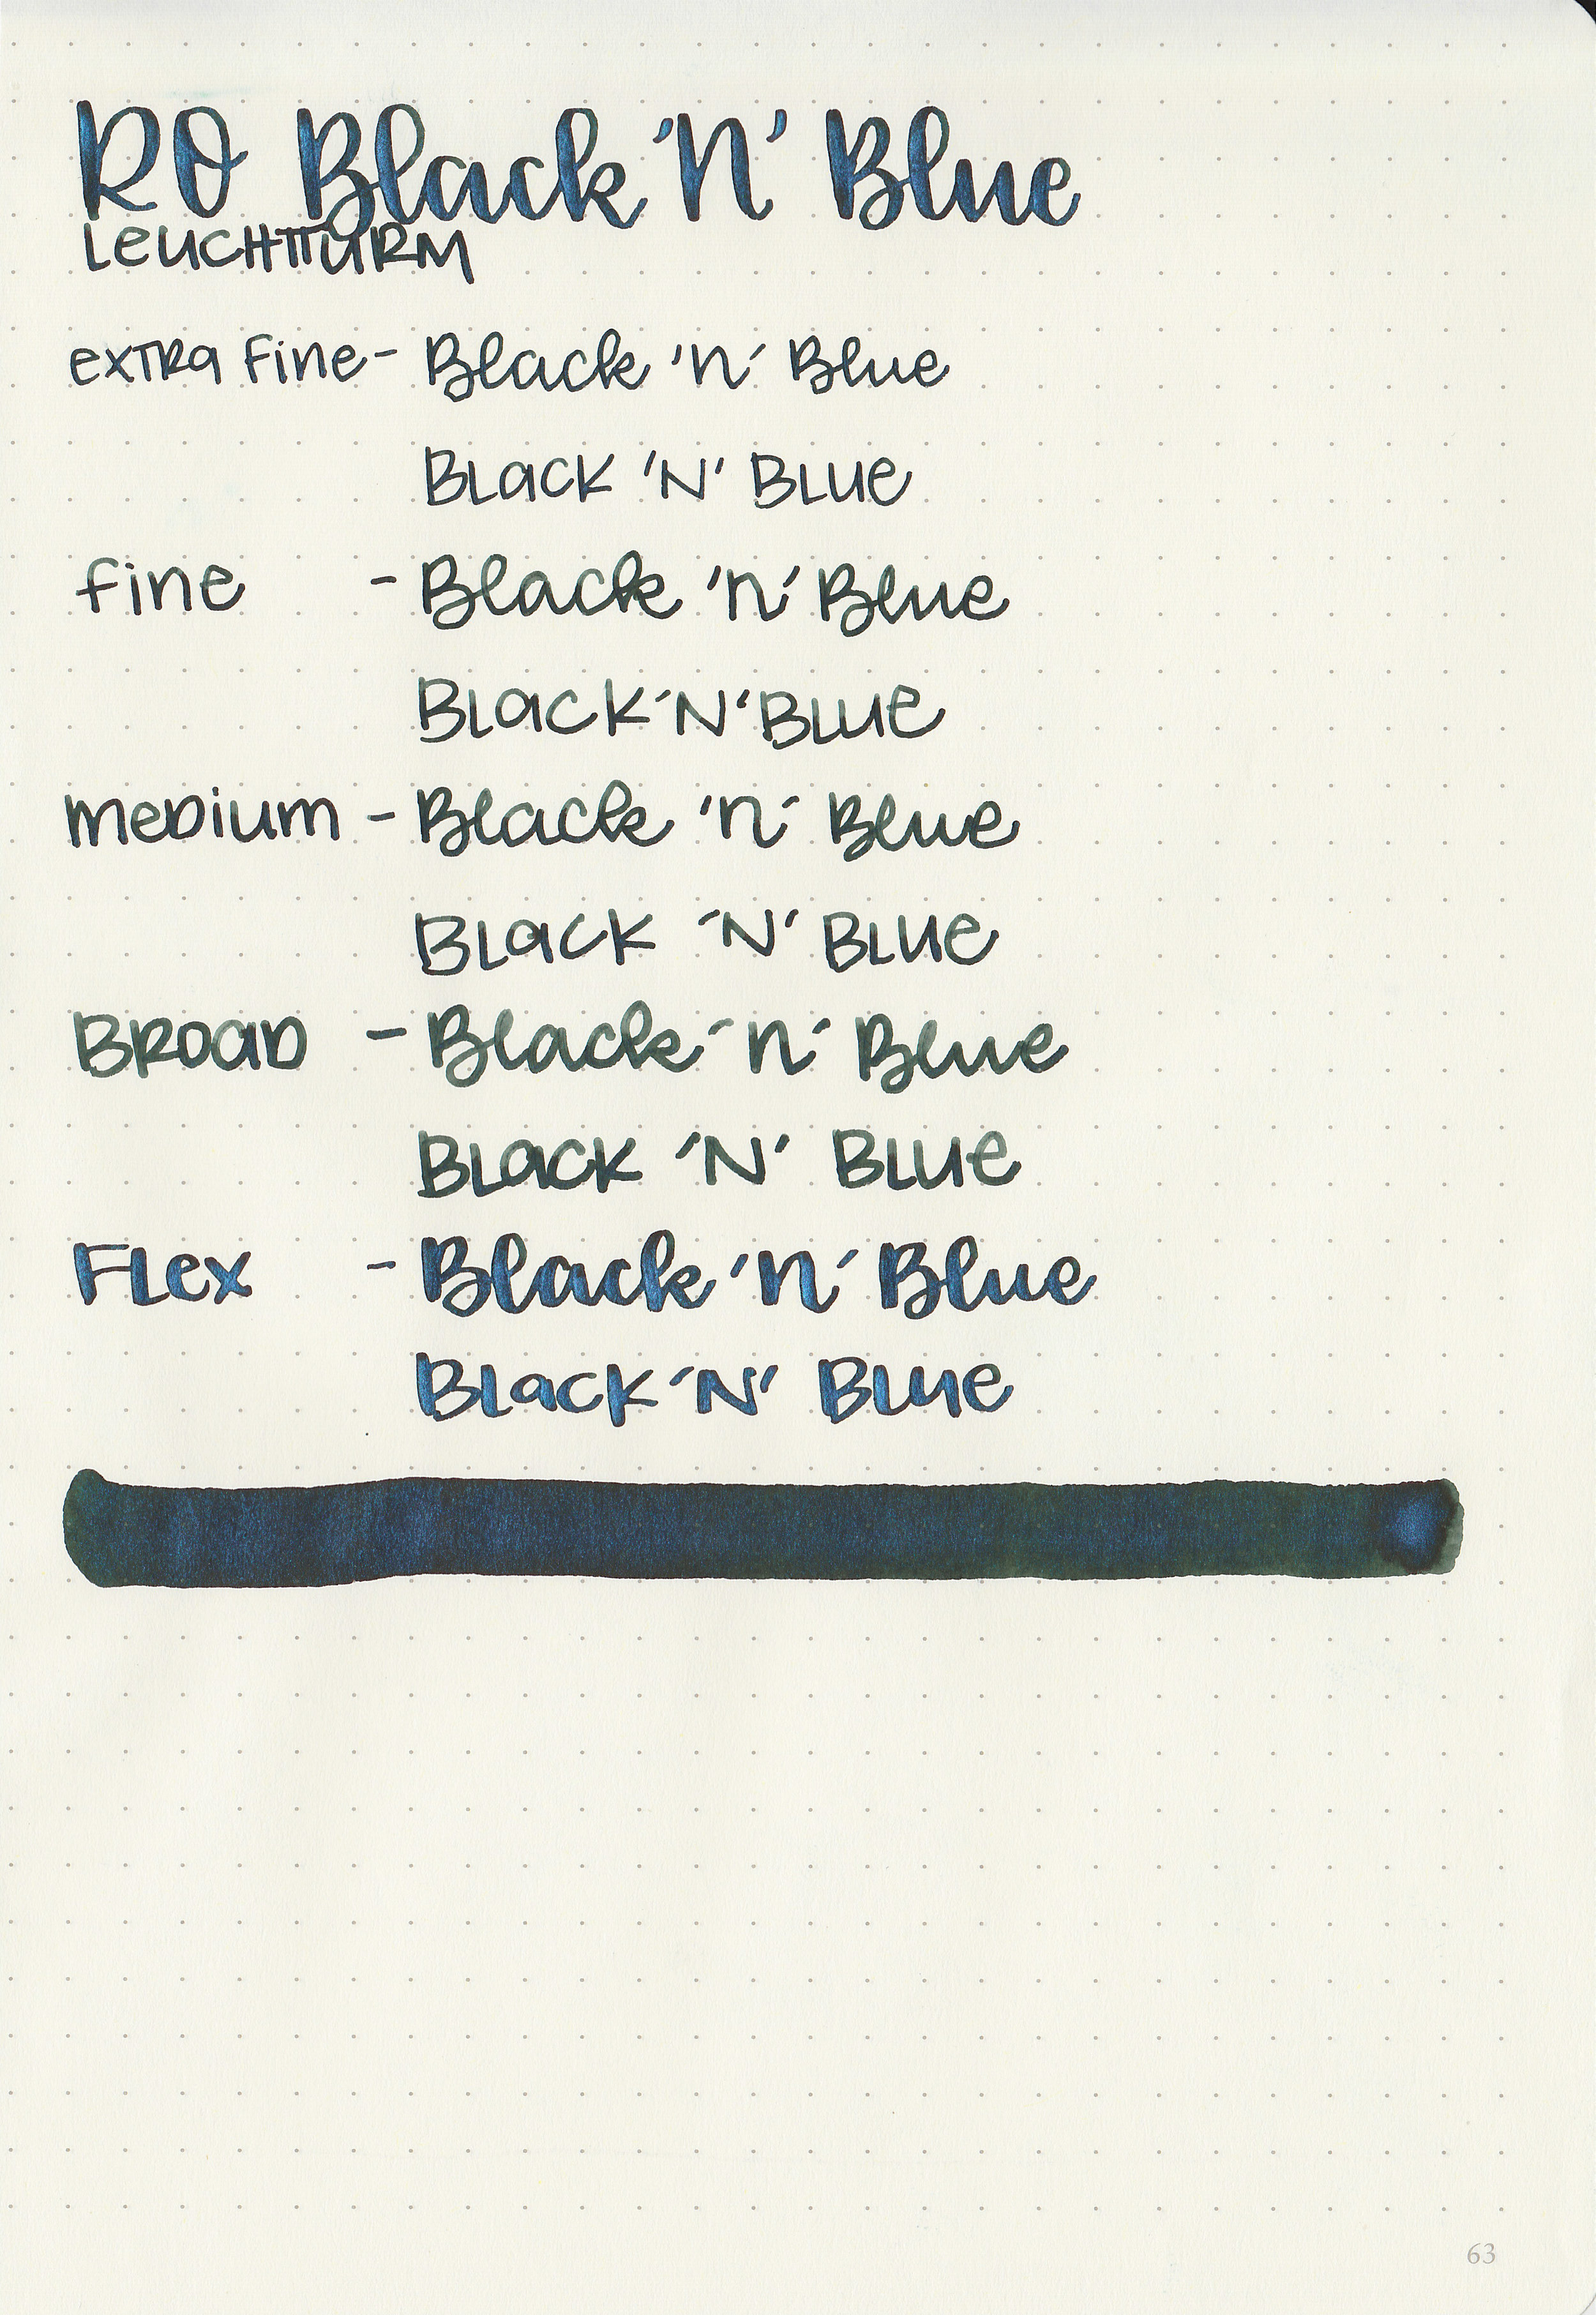 RO Black 'N' Blue
LeUCHTTURM
exTRa Fine - Black 'n' Blue
BLacK 'N' BLUe
fine - Black 'n' Blue
BLacK 'N' BLUe
meDium - Black 'n' Blue
BLacK 'N' BLUe
BROaD - Black 'n' Blue
BLacK 'N' BLUe
FLex - Black 'n' Blue
BLacK 'N' BLUe
63